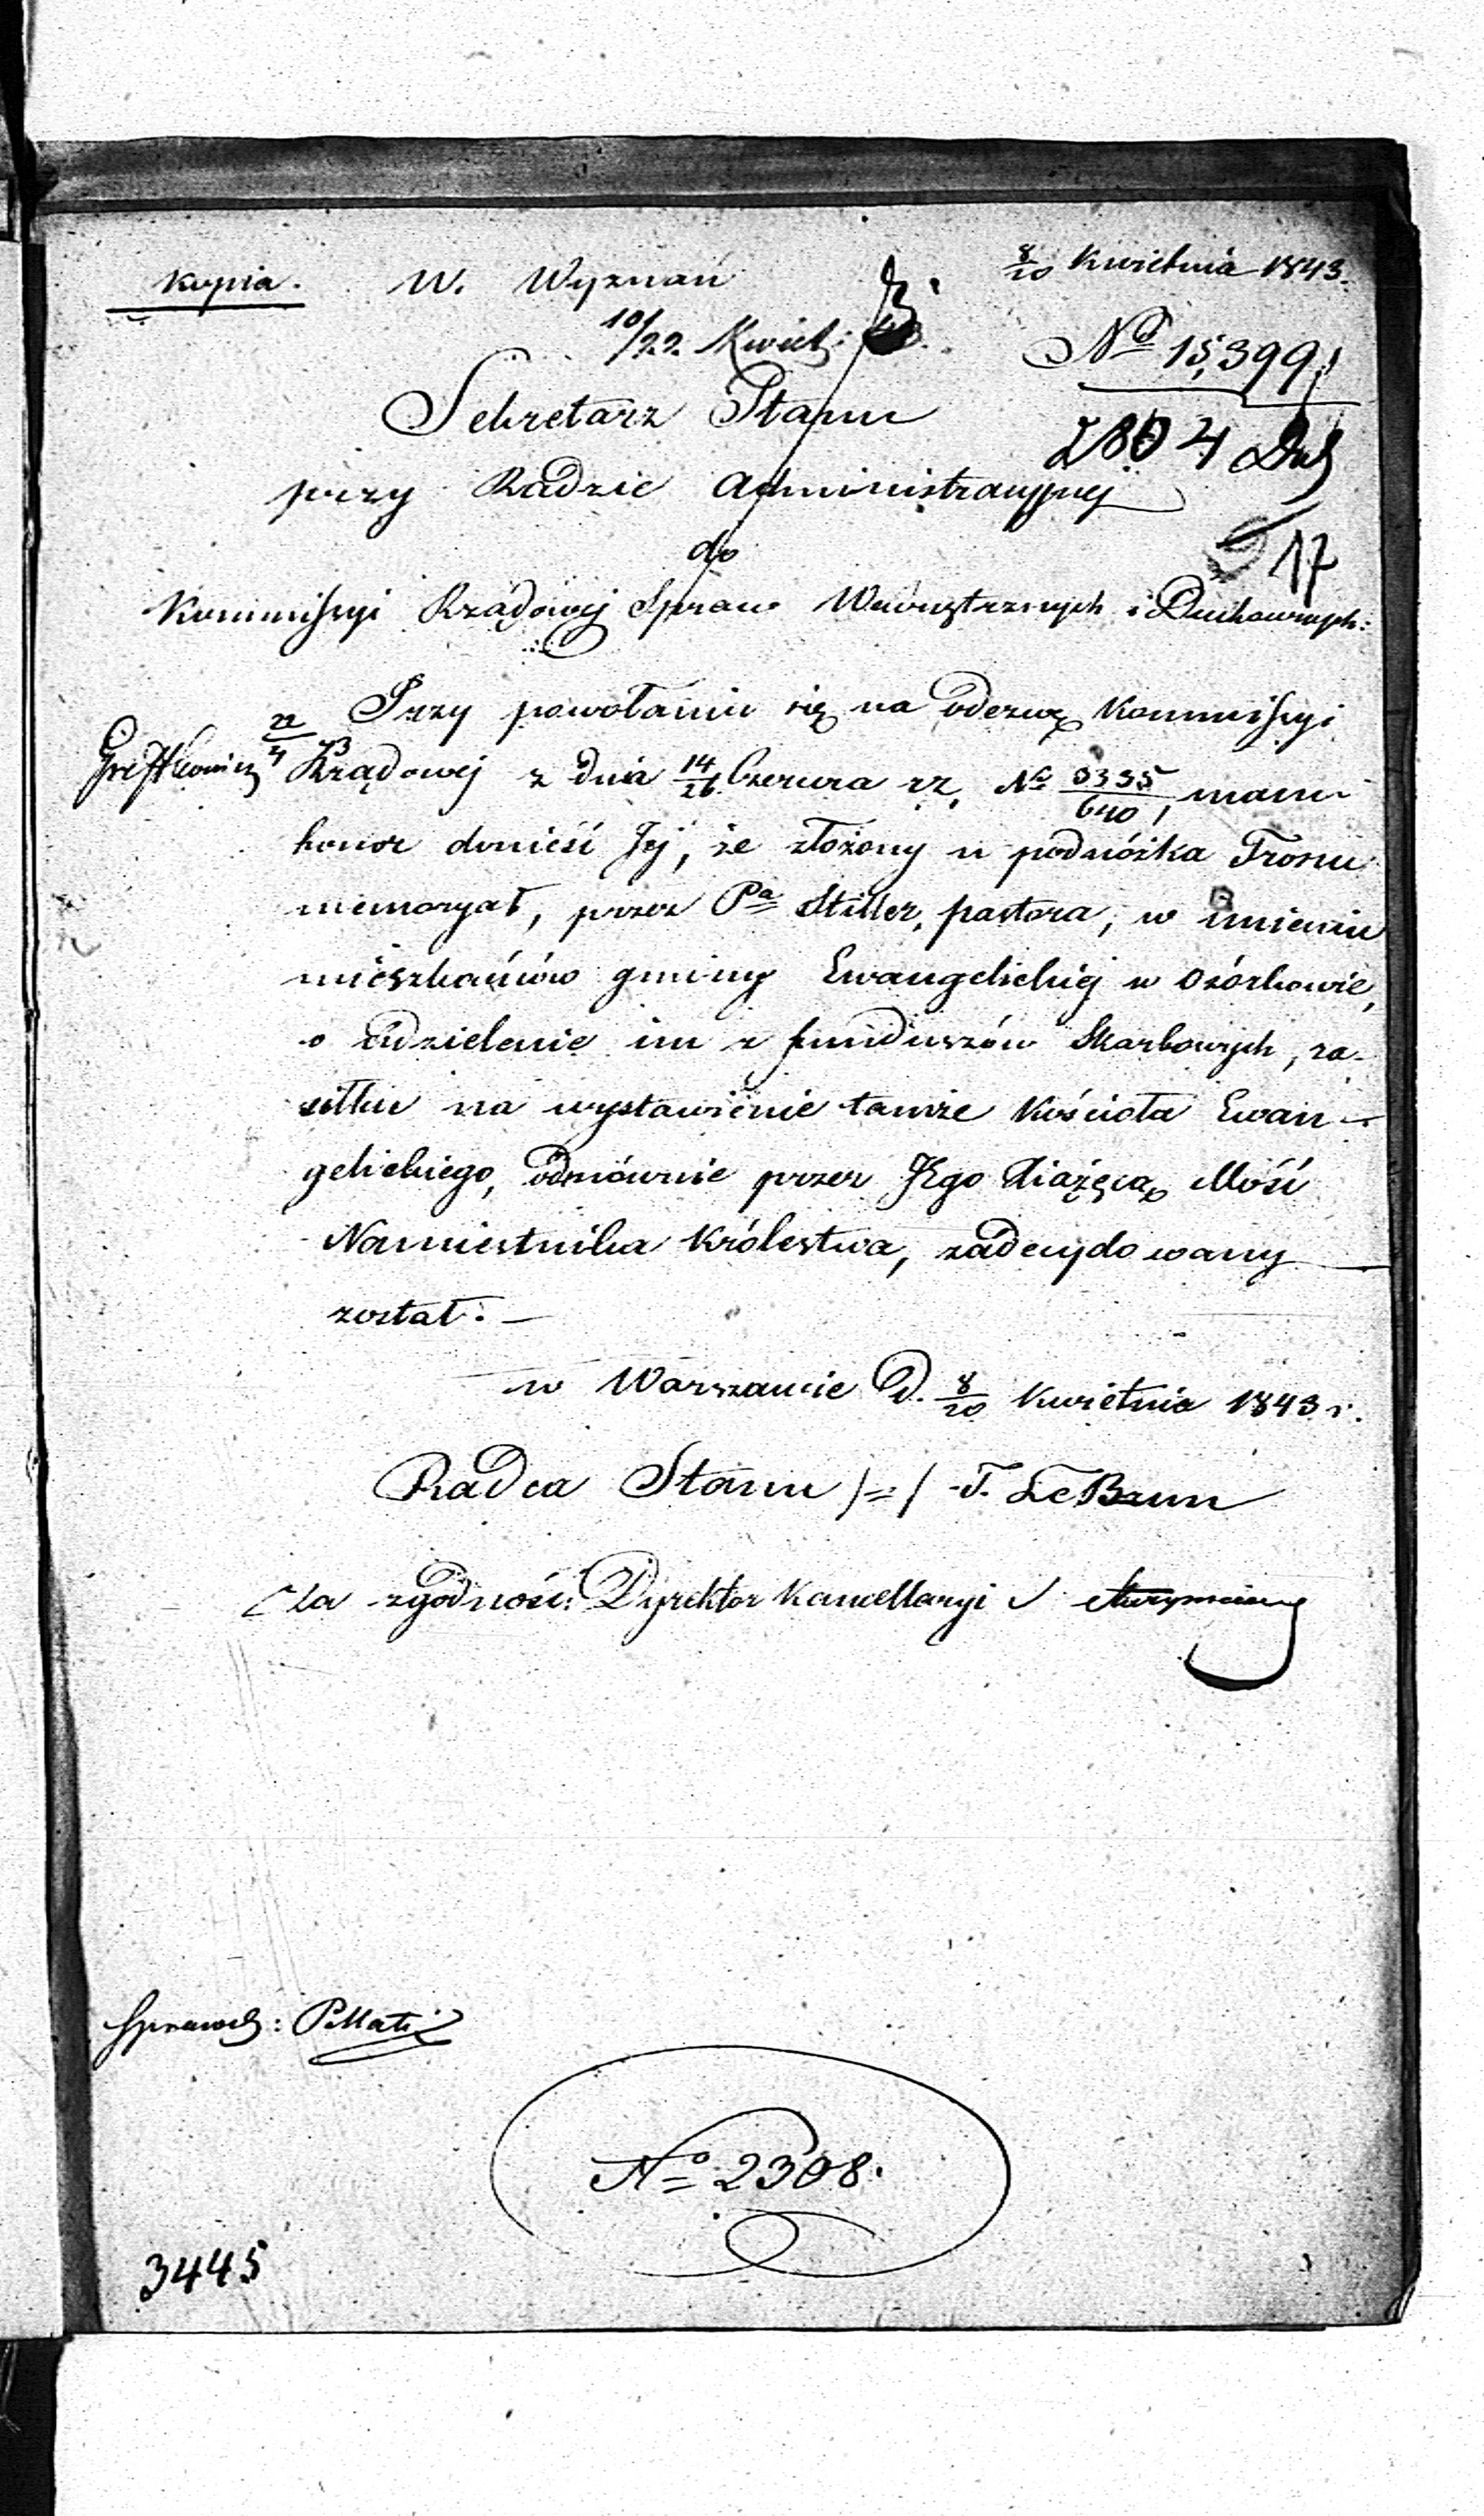 Kopia.
W. Wyznań
8/20 Kwietnia 1843.
10/22 Kwiet:
No 15,399
2804
17
Sekretarz Stanu
przy Radzie Administracyjnej
do
Kommissyi Rządowej Spraw Wewnętrznych i Duchownych:
Przy powołaniu się na odezwę Kommissyi
22/4
Rządowej z dnia 14/26 Czerwca r.z. No 3335/640, mam
honor donieść Jej, że złożony u podnóżka Tronu
memoryał, przez Pa Stiller, pastora, w imieniu
mieszkańców gminy Ewangelickiej w Ozórkowie,
o udzielenie im z funduszów Skarbowych, za-
siłku na wystawienie tamże Kościoła Ewan-
gelickiego, odmównie przez JEgo Xiążęcą Mość
Namiestnika Królestwa, zadecydowany
został. —
w Warszawie D. 8/20 Kwietnia 1843 r.
Radca Stanu /=/ T. Le Brun
Za zgodność: Dyrektor Kancellaryi
Sprawdz:
No 2308.
3445